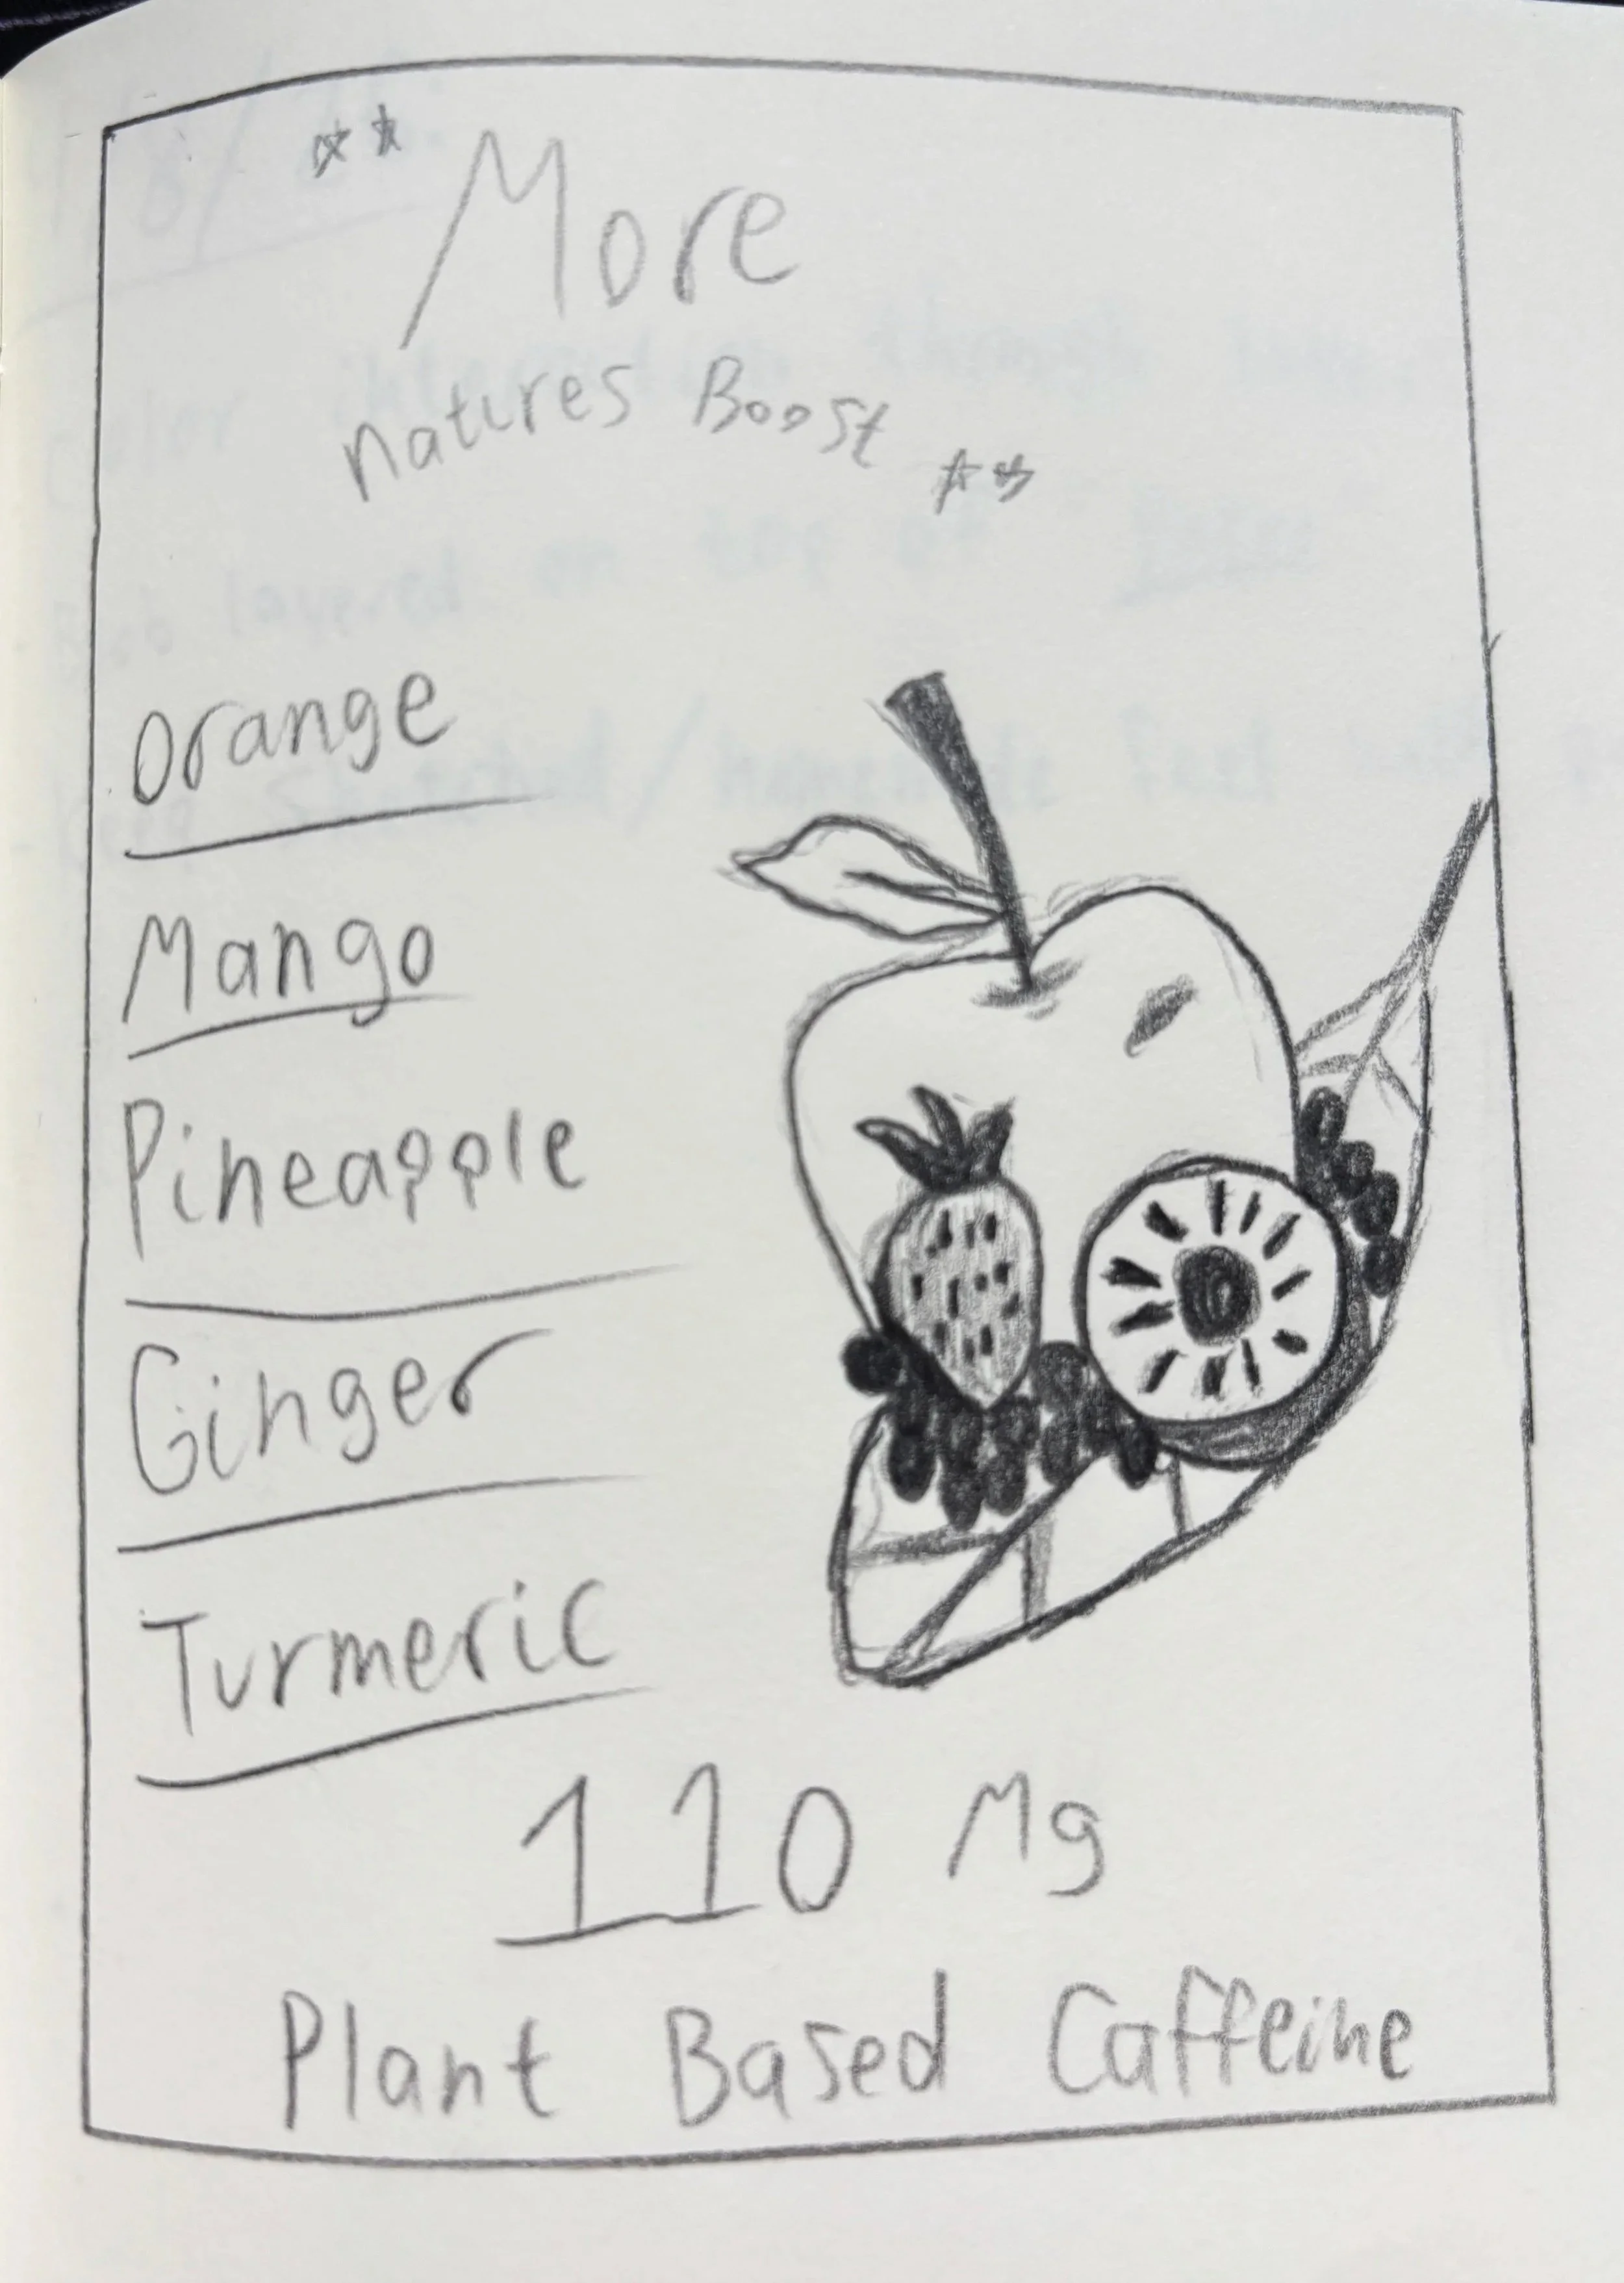 More
Natures Boost
Orange
Mango
Pineapple
Ginger
Turmeric
110 Mg
Plant Based Caffeine
layered on top of